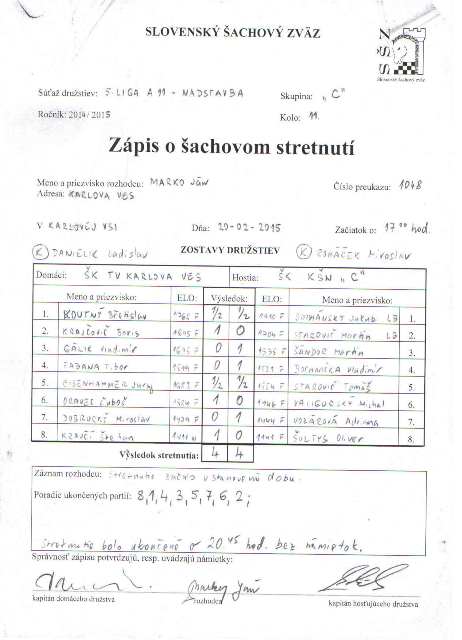 SLOVENSKÝ ŠACHOVÝ ZVÄZ
Súťaž družstiev: 5 LIGA A 11 - NADSTAVBA Skupina: „C"
Ročník: 2014/2015 Kolo: 11.
Zápis o šachovom stretnutí
Meno a priezvisko rozhodcu: MARKO JÁN Číslo preukazu: 1048
Adresa: KARLOVA VES
V KARLOVEJ VSI Dňa: 20-02-2015 Začiatok o: 17 00 hod.
(K) DANIELIK Ladislav ZOSTAVY DRUŽSTIEV (K) Miroslav
Domáci: ŠK TV KARLOVA VES Hostia: ŠK KŠN „C"
Meno a priezvisko: ELO: Výsledok: ELO: Meno a priezvisko:
1. KOUTNÝ Břetislav ½ ½ Jakub 1.
2. KRAJČOVIČ Boris 1 0 STAROVIČ Martin 2.
3. GÁLIK Vladimír 0 1 ŠÁNDOR Martin 3.
4. Tibor 0 1 Vladimír 4.
5. EISENHAMMER Juraj ½ ½ STAROVIČ Tomáš 5.
6. Ľuboš 1 0 VALIGURSKÝ Michal 6.
7. DOBRUCKÝ Miroslav 0 1 Adriana 7.
8. 1 0 ŠULTYS Oliver 8.
Výsledok stretnutia: 4 4
Záznam rozhodcu: stretnutie začalo v stanovenú dobu.
Poradie ukončených partií: 8,1,4,3,5,7,6,2;
Stretnutie bolo ukončené o 20 45 hod. bez námietok.
Správnosť zápisu potvrdzujú, resp. uvádzajú námietky:
kapitán domáceho družstva rozhodca kapitán hosťujúceho družstva